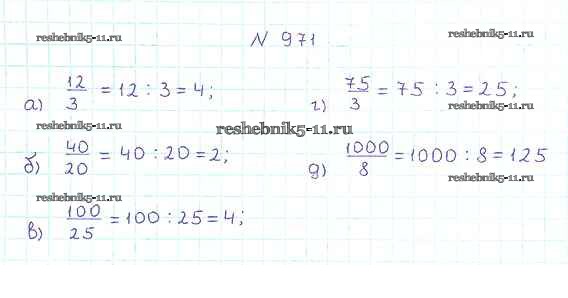 reshebnik5-11.ru
N 971
reshebnik5-11.ru
а) 12/3 = 12 : 3 = 4;
г) 75/3 = 75 : 3 = 25;
reshebnik5-11.ru
reshebnik5-11.ru
reshebnik5-11.ru
б) 40/20 = 40 : 20 = 2;
д) 1000/8 = 1000 : 8 = 125
reshebnik5-11.ru
reshebnik5-11.ru
в) 100/25 = 100 : 25 = 4;